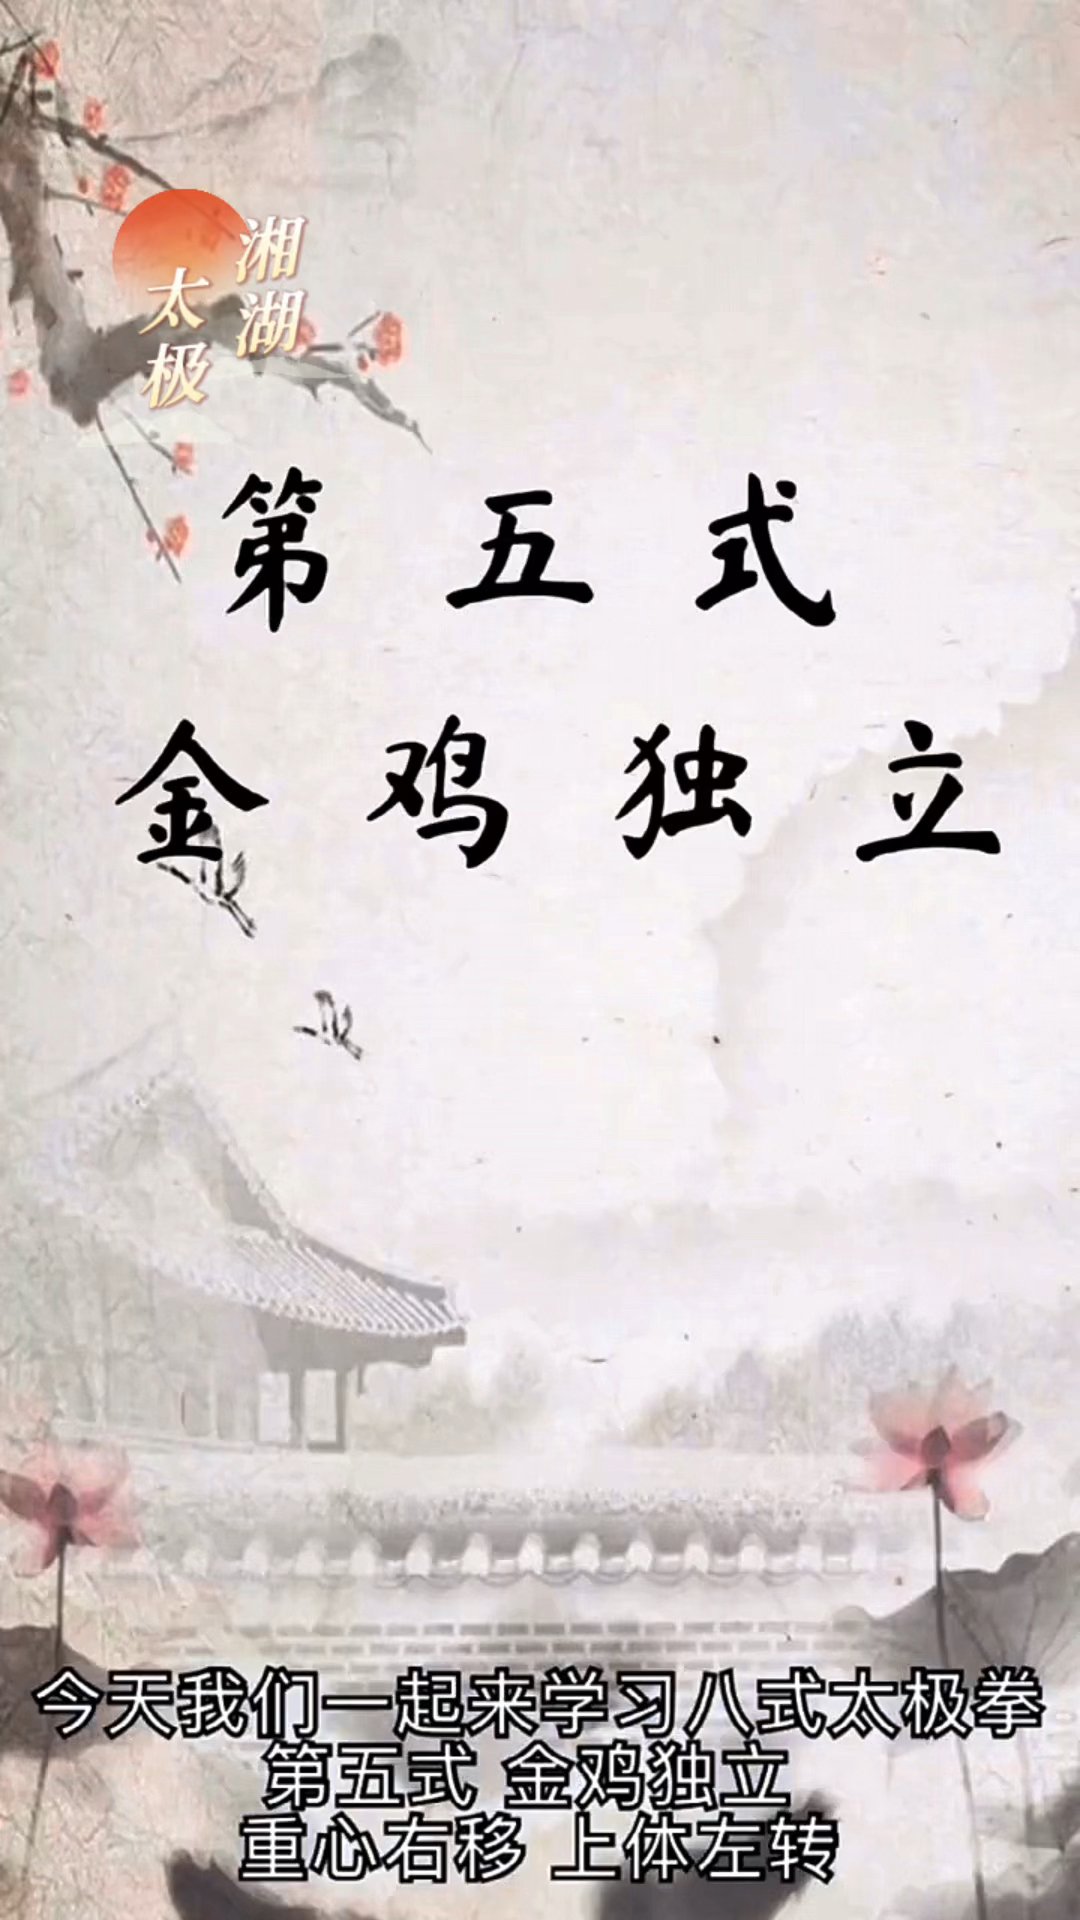 湘湖
太极
第五式
金鸡独立
今天我们一起来学习八式太极拳
第五式 金鸡独立
重心右移 上体左转